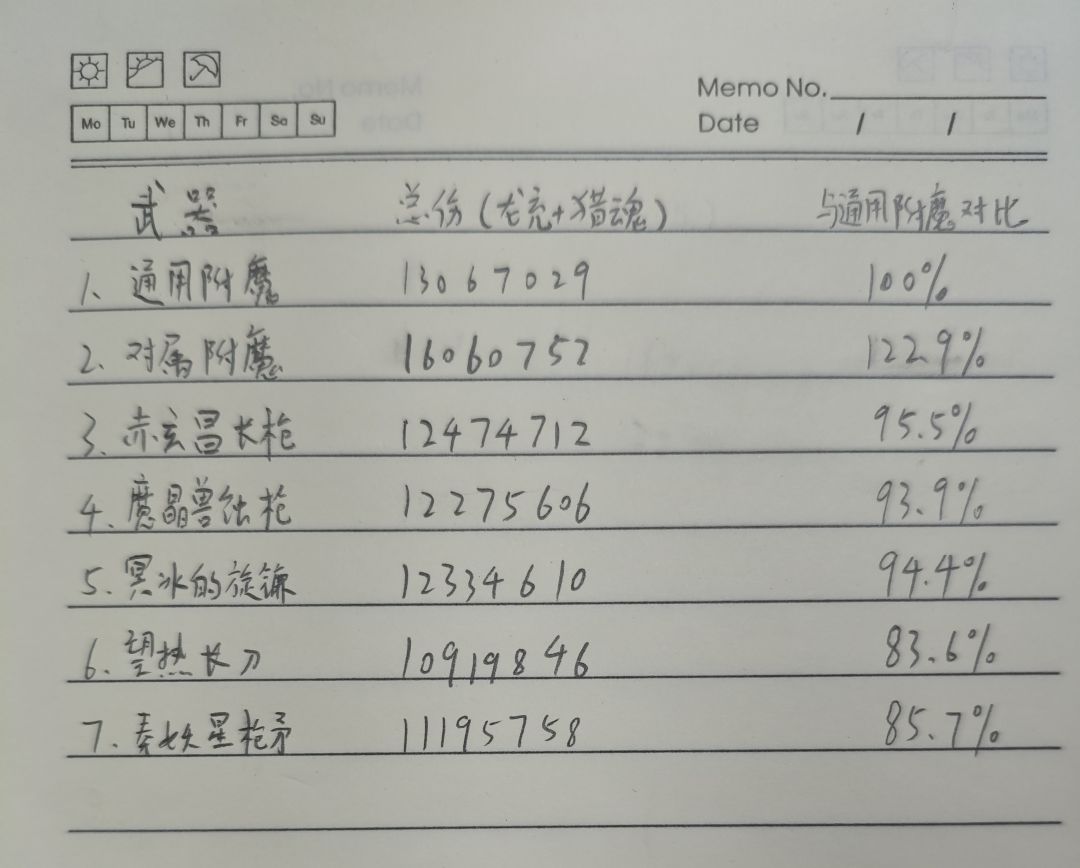 Mo Tu We Th Fr Sa Su
Memo No.
Date / /
武器 总伤(龙充+猎魂) 与通用附魔对比
1、通用附魔 13067029 100%
2、对属附魔 16060752 122.9%
3、赤玄昌长枪 12474712 95.5%
4、魔晶兽蚀枪 12275606 93.9%
5、冥冰的旋镰 12334610 94.4%
6、望热长刀 10919846 83.6%
7、秦妖星枪矛 11195758 85.7%